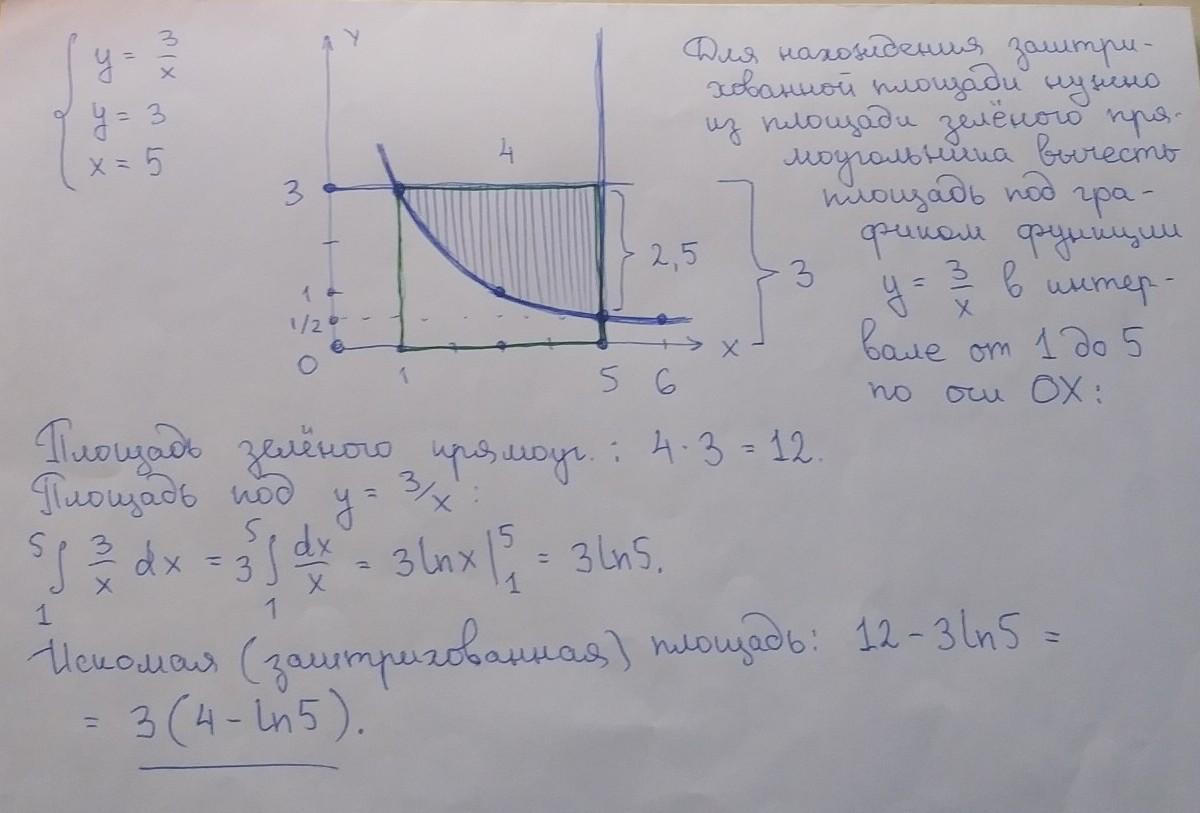 y = 3/x
y = 3
x = 5
Y
4
3
2,5
3
1
1/2
0
1
5
6
X
Для нахождения заштри-
хованной площади нужно
из площади зелёного пря-
моугольника вычесть
площадь под гра-
фиком функции
y = 3/x в интер-
вале от 1 до 5
по оси OX:
Площадь зелёного прямоуг.: 4·3 = 12.
Площадь под y = 3/x:
₁⁵∫ 3/x dx = 3 ₁⁵∫ dx/x = 3lnx|₁⁵ = 3ln5.
Искомая (заштрихованная) площадь: 12 - 3ln5 =
= 3(4 - ln5).